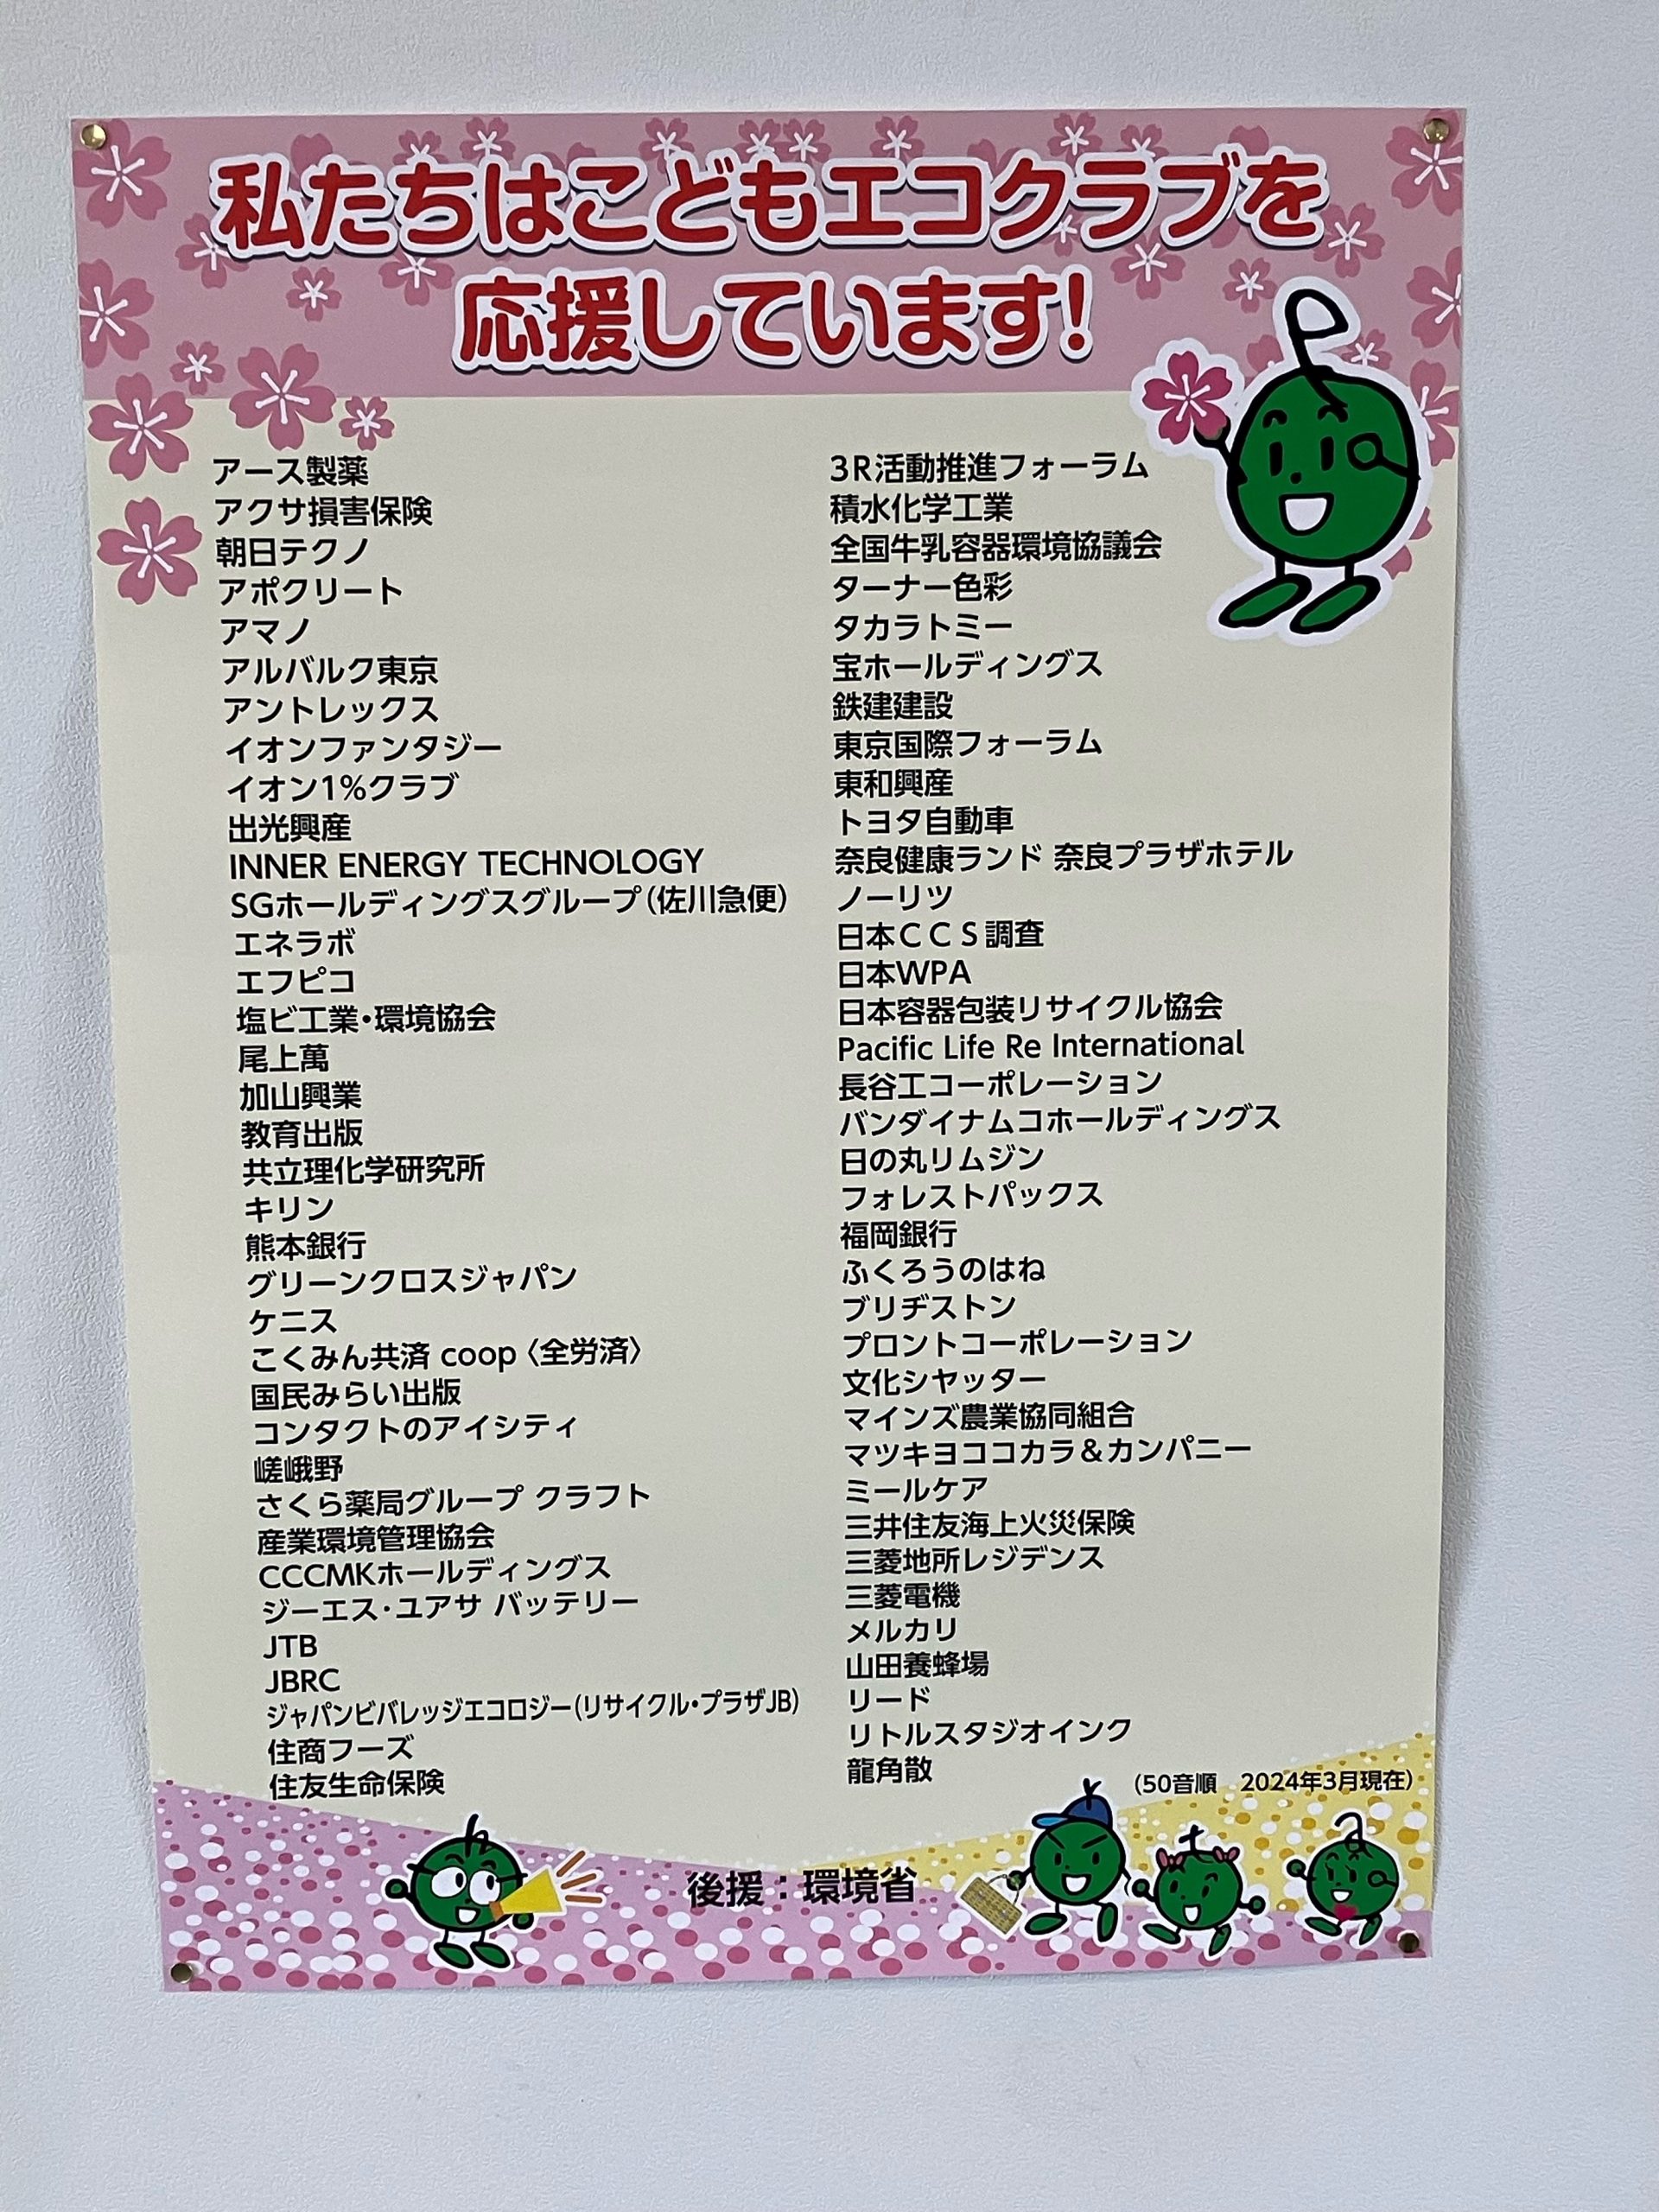 私たちはこどもエコクラブを
応援しています!
アース製薬
アクサ損害保険
朝日テクノ
アポクリート
アマノ
アルバルク東京
アントレックス
イオンファンタジー
イオン1%クラブ
出光興産
INNER ENERGY TECHNOLOGY
SGホールディングスグループ（佐川急便）
エネラボ
エフピコ
塩ビ工業・環境協会
尾上萬
加山興業
教育出版
共立理化学研究所
キリン
熊本銀行
グリーンクロスジャパン
ケニス
こくみん共済 coop〈全労済〉
国民みらい出版
コンタクトのアイシティ
嵯峨野
さくら薬局グループ クラフト
産業環境管理協会
CCCMKホールディングス
ジーエス・ユアサ バッテリー
JTB
JBRC
ジャパンビバレッジエコロジー(リサイクル・プラザJB)
住商フーズ
住友生命保険
3R活動推進フォーラム
積水化学工業
全国牛乳容器環境協議会
ターナー色彩
タカラトミー
宝ホールディングス
鉄建建設
東京国際フォーラム
東和興産
トヨタ自動車
奈良健康ランド 奈良プラザホテル
ノーリツ
日本ＣＣＳ調査
日本WPA
日本容器包装リサイクル協会
Pacific Life Re International
長谷工コーポレーション
バンダイナムコホールディングス
日の丸リムジン
フォレストパックス
福岡銀行
ふくろうのはね
ブリヂストン
プロントコーポレーション
文化シヤッター
マインズ農業協同組合
マツキヨココカラ＆カンパニー
ミールケア
三井住友海上火災保険
三菱地所レジデンス
三菱電機
メルカリ
山田養蜂場
リード
リトルスタジオインク
龍角散
（50音順　2024年3月現在）
後援：環境省